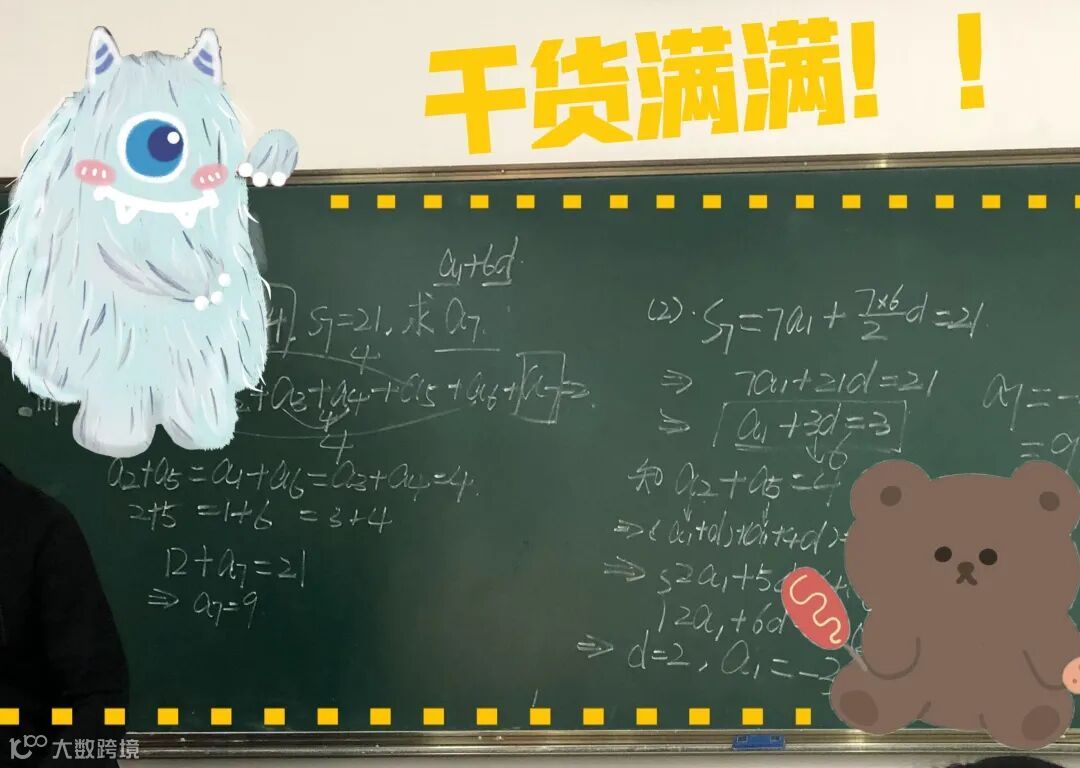 干货满满！！
a₁+6d.
S₇=21,求a₇.
4
+a₃+a₄+a₅+a₆+a₇=2
4
4
a₂+a₅=a₁+a₆=a₃+a₄=4.
2+5=1+6=3+4
12+a₇=21
⇒ a₇=9.
(2). S₇=7a₁+7×6/2 d=21.
⇒ 7a₁+21d=21
⇒ a₁+3d=3
6
知 a₂+a₅=4
⇒ (a₁+d)+a₁+4d
⇒ 2a₁+5d
2a₁+6d
⇒ d=2, a₁=-3
a₇=-
=9
大数跨境